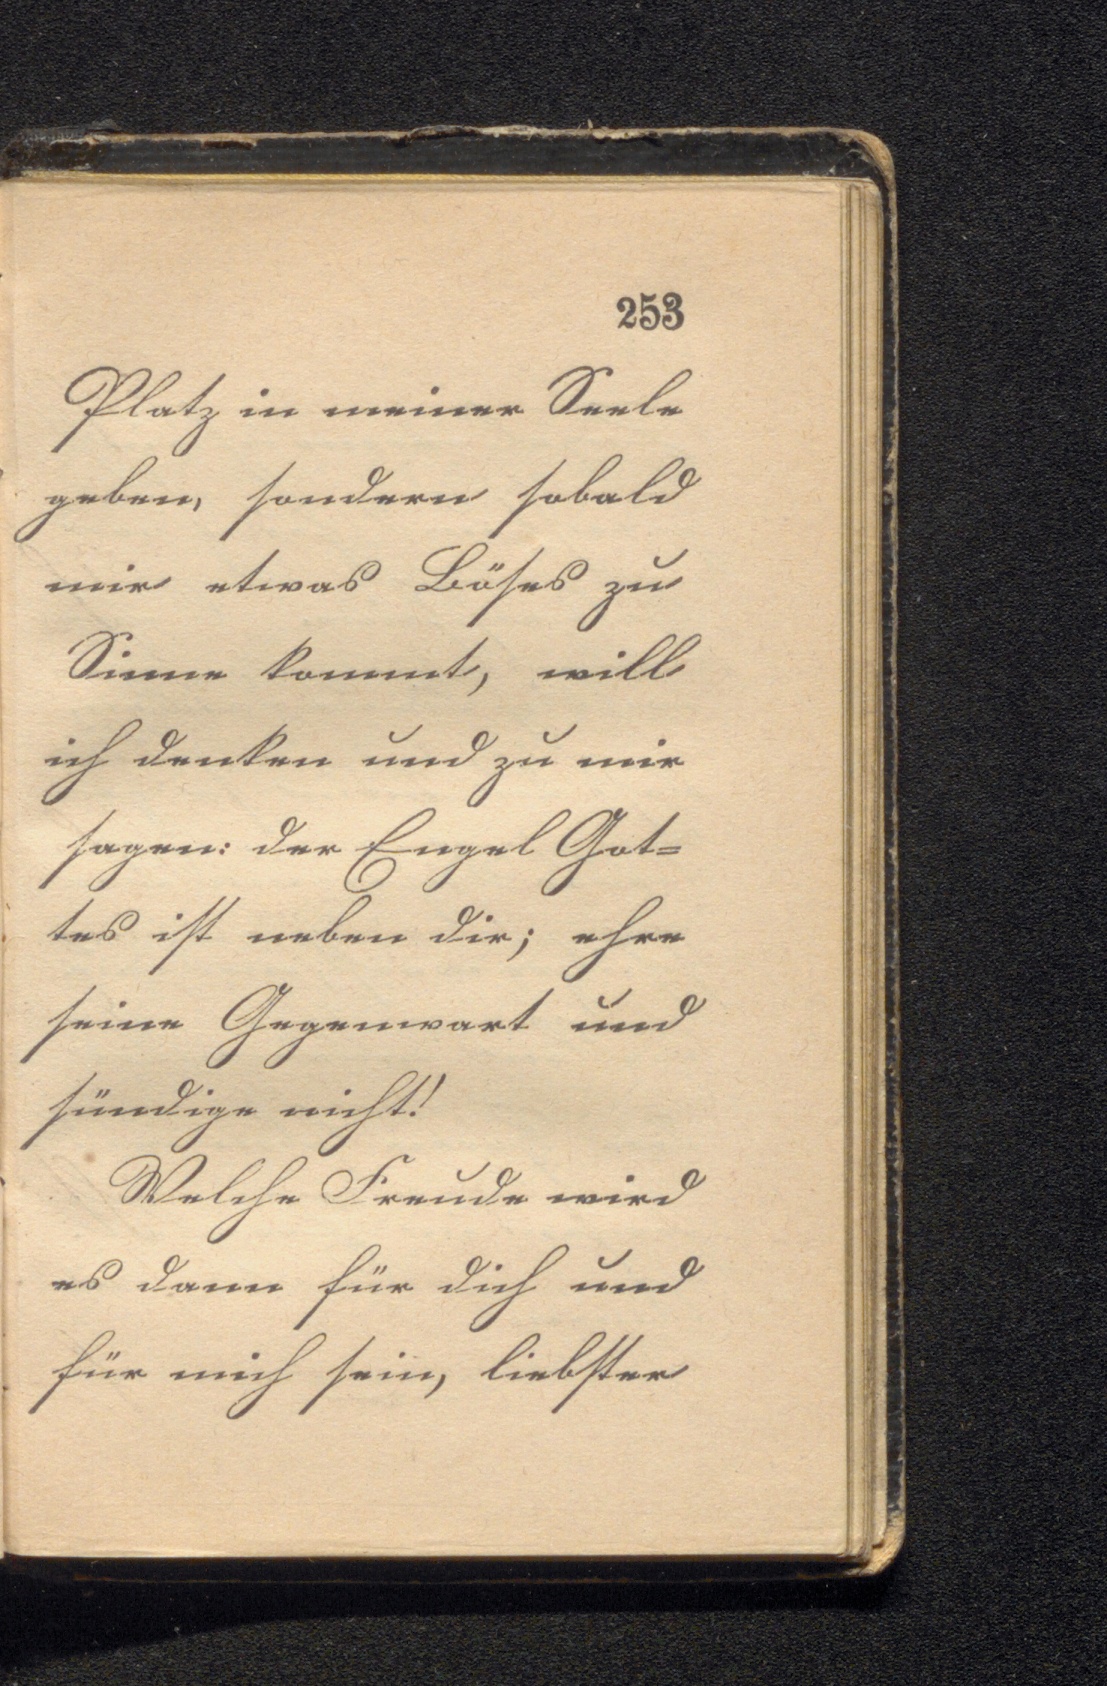 253
Platz in meiner Seele
geben, sondern sobald
mir etwas Böses zu
Sinne kommt, will
ich denken und zu mir
sagen: der Engel Got=
tes ist neben dir; ehre
seine Gegenwart und
sündige nicht!
Welche Freude wird
es dann für dich und
für mich sein, liebster